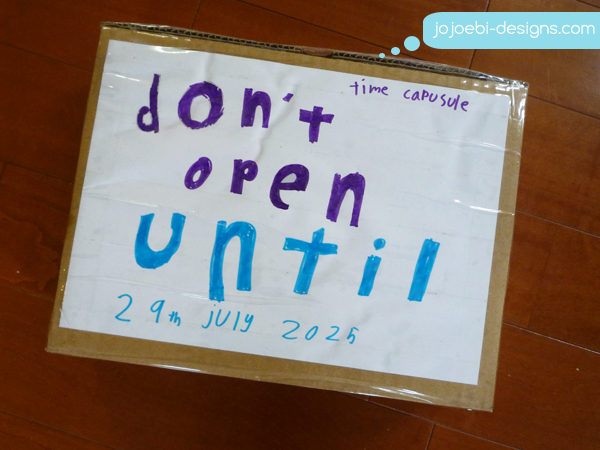 jojoebi-designs.com
time capusule
don't
open
until
29th july 2025